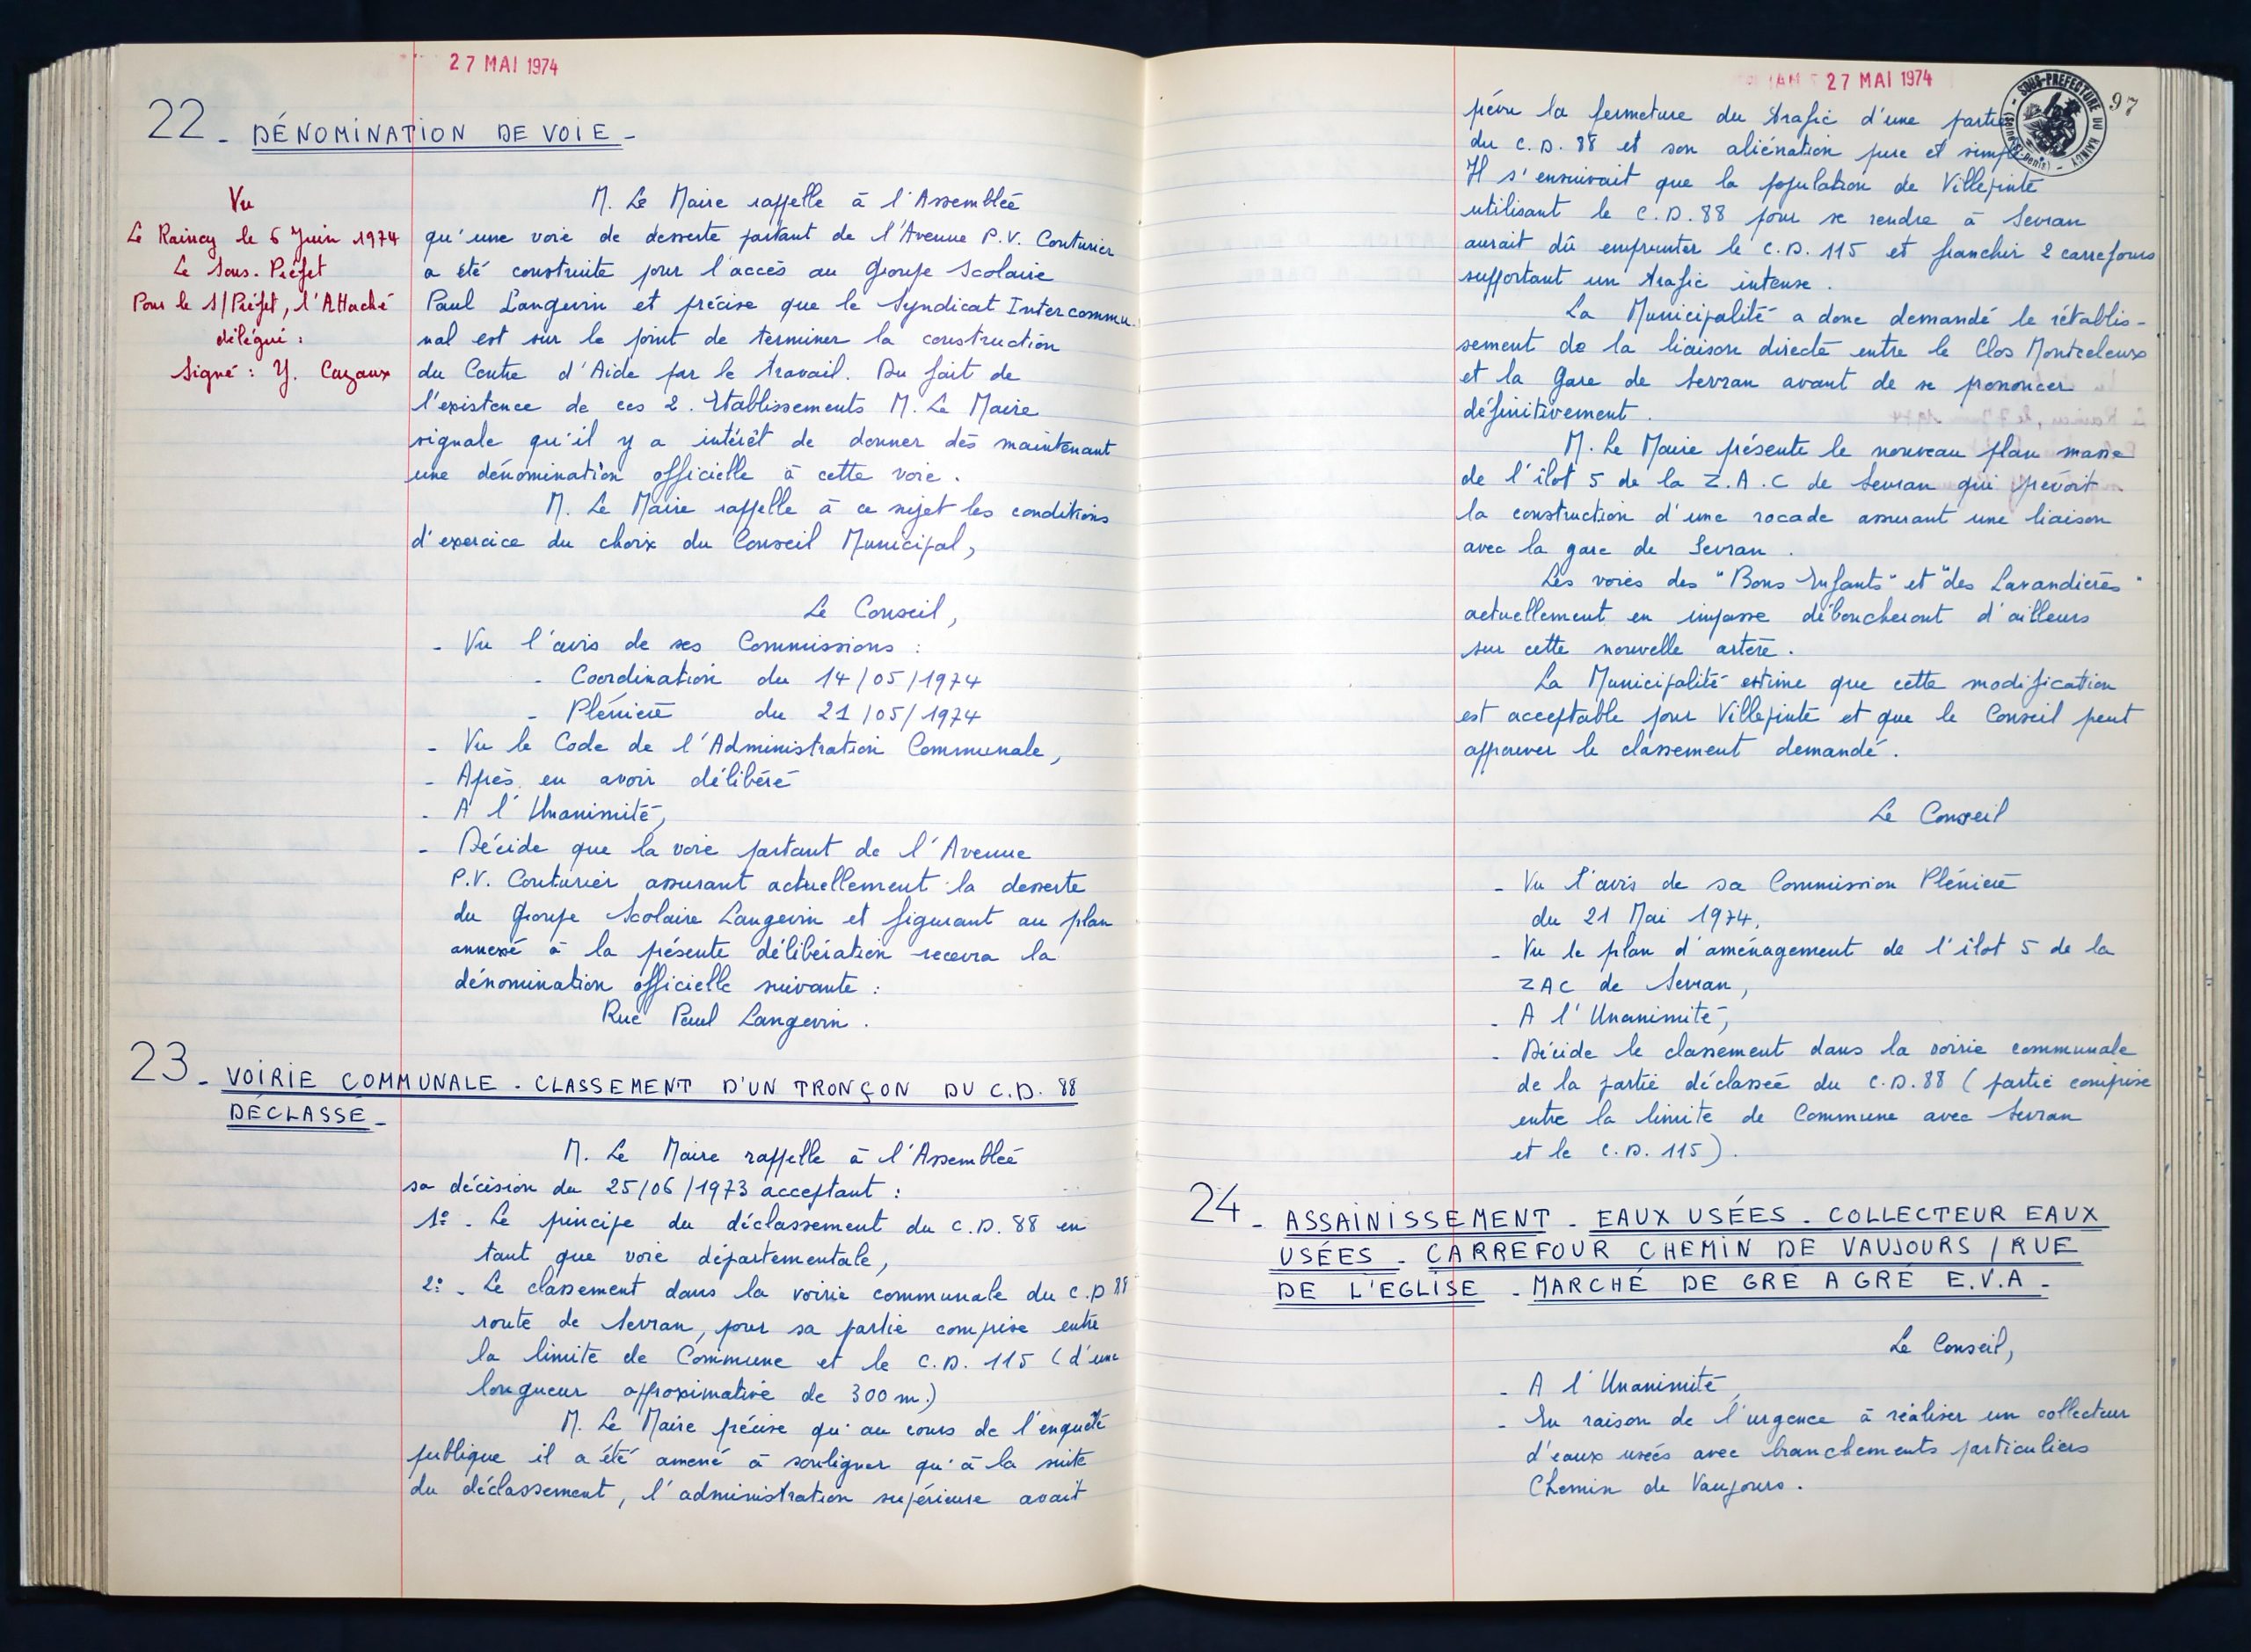 27 MAI 1974
22 - DÉNOMINATION DE VOIE -
Vu
Le Raincy le 6 Juin 1974
Le Sous-Préfet
Pour le S/Préfet, l'Attaché
délégué :
Signé : Y. Cazaux
M. Le Maire rappelle à l'Assemblée
qu'une voie de desserte partant de l'Avenue P.V. Couturier
a été construite pour l'accès au Groupe Scolaire
Paul Langevin et précise que le Syndicat Intercommu-
nal est sur le point de terminer la construction
du Centre d'Aide par le travail. Du fait de
l'existence de ces 2. Etablissements M. Le Maire
signale qu'il y a intérêt de donner dès maintenant
une dénomination officielle à cette voie.
M. Le Maire rappelle à ce sujet les conditions
d'exercice du choix du Conseil Municipal,
Le Conseil,
- Vu l'avis de ses Commissions :
- Coordination du 14/05/1974
- Plénière du 21/05/1974
- Vu le Code de l'Administration Communale,
- Après en avoir délibéré
- A l'Unanimité,
- Décide que la voie partant de l'Avenue
P.V. Couturier assurant actuellement la desserte
du Groupe Scolaire Langevin et figurant au plan
annexé à la présente délibération recevra la
dénomination officielle suivante :
Rue Paul Langevin.
23 - VOIRIE COMMUNALE - CLASSEMENT D'UN TRONÇON DU C.D. 88
DÉCLASSÉ -
M. Le Maire rappelle à l'Assemblée
sa décision du 25/06/1973 acceptant :
1º - Le principe du déclassement du C.D. 88 en
tant que voie départementale,
2º - Le classement dans la voirie communale du C.D 88
route de Sevran, pour sa partie comprise entre
la limite de Commune et le C.D. 115 (d'une
longueur approximative de 300 m.)
M. Le Maire précise qu'au cours de l'enquête
publique il a été amené à souligner qu'à la suite
du déclassement, l'administration supérieure avait
27 MAI 1974
97
SOUS-PREFECTURE DU RAINCY
(Seine-St-Denis)
prévu la fermeture du trafic d'une partie
du C.D. 88 et son aliénation pure et simple
Il s'ensuivait que la population de Villepinte
utilisant le C.D. 88 pour se rendre à Sevran
aurait dû emprunter le C.D. 115 et franchir 2 carrefours
supportant un trafic intense.
La Municipalité a donc demandé le rétablis-
sement de la liaison directe entre le Clos Montceleux
et la Gare de Sevran avant de se prononcer
définitivement.
M. Le Maire présente le nouveau plan masse
de l'îlot 5 de la Z.A.C de Sevran qui prévoit
la construction d'une rocade assurant une liaison
avec la gare de Sevran.
Les voies des "Bons Enfants" et "des Lavandières"
actuellement en impasse déboucheront d'ailleurs
sur cette nouvelle artère.
La Municipalité estime que cette modification
est acceptable pour Villepinte et que le Conseil peut
approuver le classement demandé.
Le Conseil
- Vu l'avis de sa Commission Plénière
du 21 Mai 1974,
- Vu le plan d'aménagement de l'îlot 5 de la
ZAC de Sevran,
- A l'Unanimité,
- Décide le classement dans la voirie communale
de la partie déclassée du C.D. 88 (partie comprise
entre la limite de Commune avec Sevran
et le C.D. 115).
24 - ASSAINISSEMENT - EAUX USÉES - COLLECTEUR EAUX
USÉES - CARREFOUR CHEMIN DE VAUJOURS / RUE
DE L'EGLISE - MARCHÉ DE GRE A GRÉ E.V.A -
Le Conseil,
- A l'Unanimité,
- En raison de l'urgence à réaliser un collecteur
d'eaux usées avec branchements particuliers
Chemin de Vaujours.